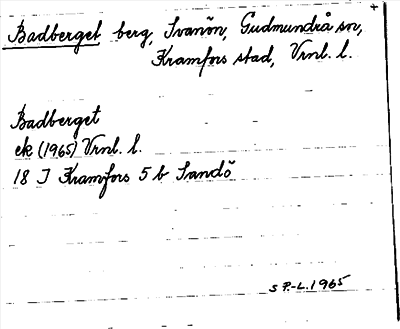 Badberget berg, Svanön, Gudmundrå sn,
Kramfors stad, Vrnl. l.
Badberget
ek (1965) Vrnl. l.
18 J Kramfors 5 b Sandö
S P.-L. 1965